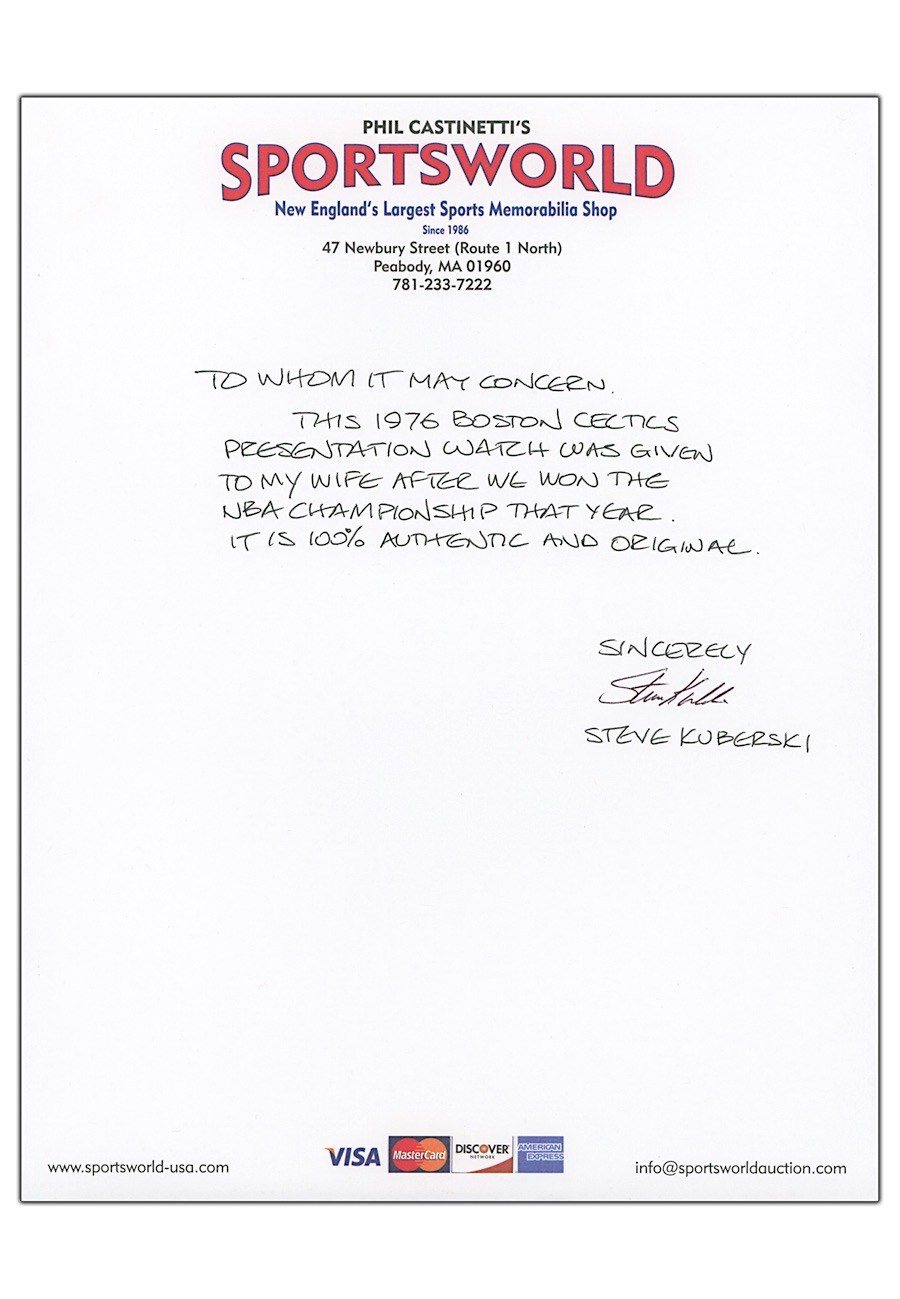 PHIL CASTINETTI'S
SPORTSWORLD
New England's Largest Sports Memorabilia Shop
Since 1986
47 Newbury Street (Route 1 North)
Peabody, MA 01960
781-233-7222
TO WHOM IT MAY CONCERN.
THIS 1976 BOSTON CELTICS
PRESENTATION WATCH WAS GIVEN
TO MY WIFE AFTER WE WON THE
NBA CHAMPIONSHIP THAT YEAR.
IT IS 100% AUTHENTIC AND ORIGINAL.
SINCERELY
Steve Kuberski
STEVE KUBERSKI
VISA MasterCard DISCOVER NETWORK AMERICAN EXPRESS
www.sportsworld-usa.com info@sportsworldauction.com